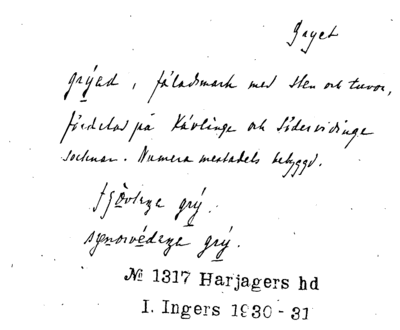 Gryet
grýed, fäladsmark med sten och tuvor,
fördelad på Kävlinge och Södervidinge
socknar. Numera mestadels bebyggd.
grý.
grý.
№ 1317 Harjagers hd
I. Ingers 1930-31